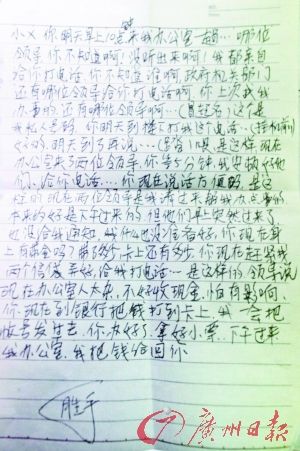 小X 你明天早上10点来我办公室一趟…哪位
领导,你不知道啊!没听出来啊!我都亲自
给你打电话,你不知道谁啊,政府机关部门
还有哪位领导给你打电话啊,你上次我
办事的,还有哪位领导啊…(冒起名)这个是
我私人号码,你明天到楼下打我这个电话…(挂机前)
好的,明天到了再说…
办公室来了两位领导,你等5分钟,我安排好他
们,给你电话…你现在说话方便吗,是这
样的,现在两位领导是我请过来帮我办点事的
本来约好是下午过来的,但他们早上突然过来了
也没给我通知,我什么也没准备好,你现在身
上有现金吗?带了多少,卡上还有多少,你现在赶紧找
两个信封装好,给我打电话…是这样的,领导说
现在办公室人太杂,不好收现金,怕有影响,
你现在到银行把钱打到卡上,我一会把
帐号发过去,你办好了,拿好小票,下午过来
我办公室,我把钱给回你
胜宇
广州日报